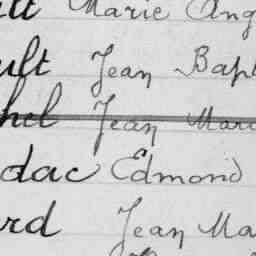 ult Marie Ang
ult Jean Bapt
hel Jean Mari
dac Edmond
rd Jean Ma